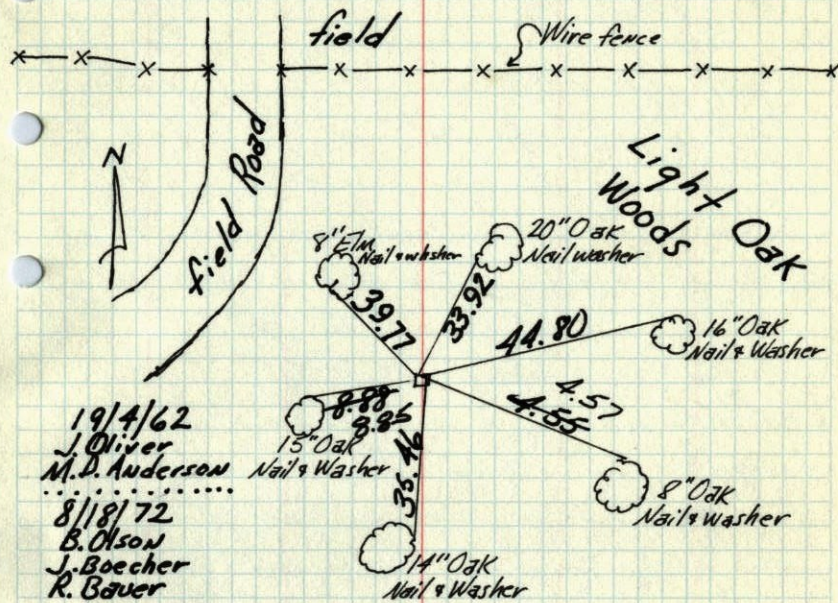 field
Wire fence
N
field Road
Light Oak
Woods
8" Elm
Nail & whsher
20" Oak
Nail washer
39.77
33.92
44.80
16" Oak
Nail & Washer
8.88
8.85
15" Oak
Nail & Washer
4.57
4.55
8" Oak
Nail & washer
35.46
14" Oak
Nail & Washer
19/4/62
J. Oliver
M.D. Anderson
8/18/72
B. Olson
J. Boecher
R. Bauer